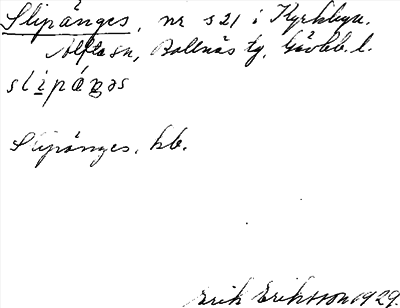 Slipänges, nr s 21 i Kyrkbyn.
Alfta sn, Bollnäs tg, Gävleb. l.
Slipänges, hb.
Erik Eriksson 1929.